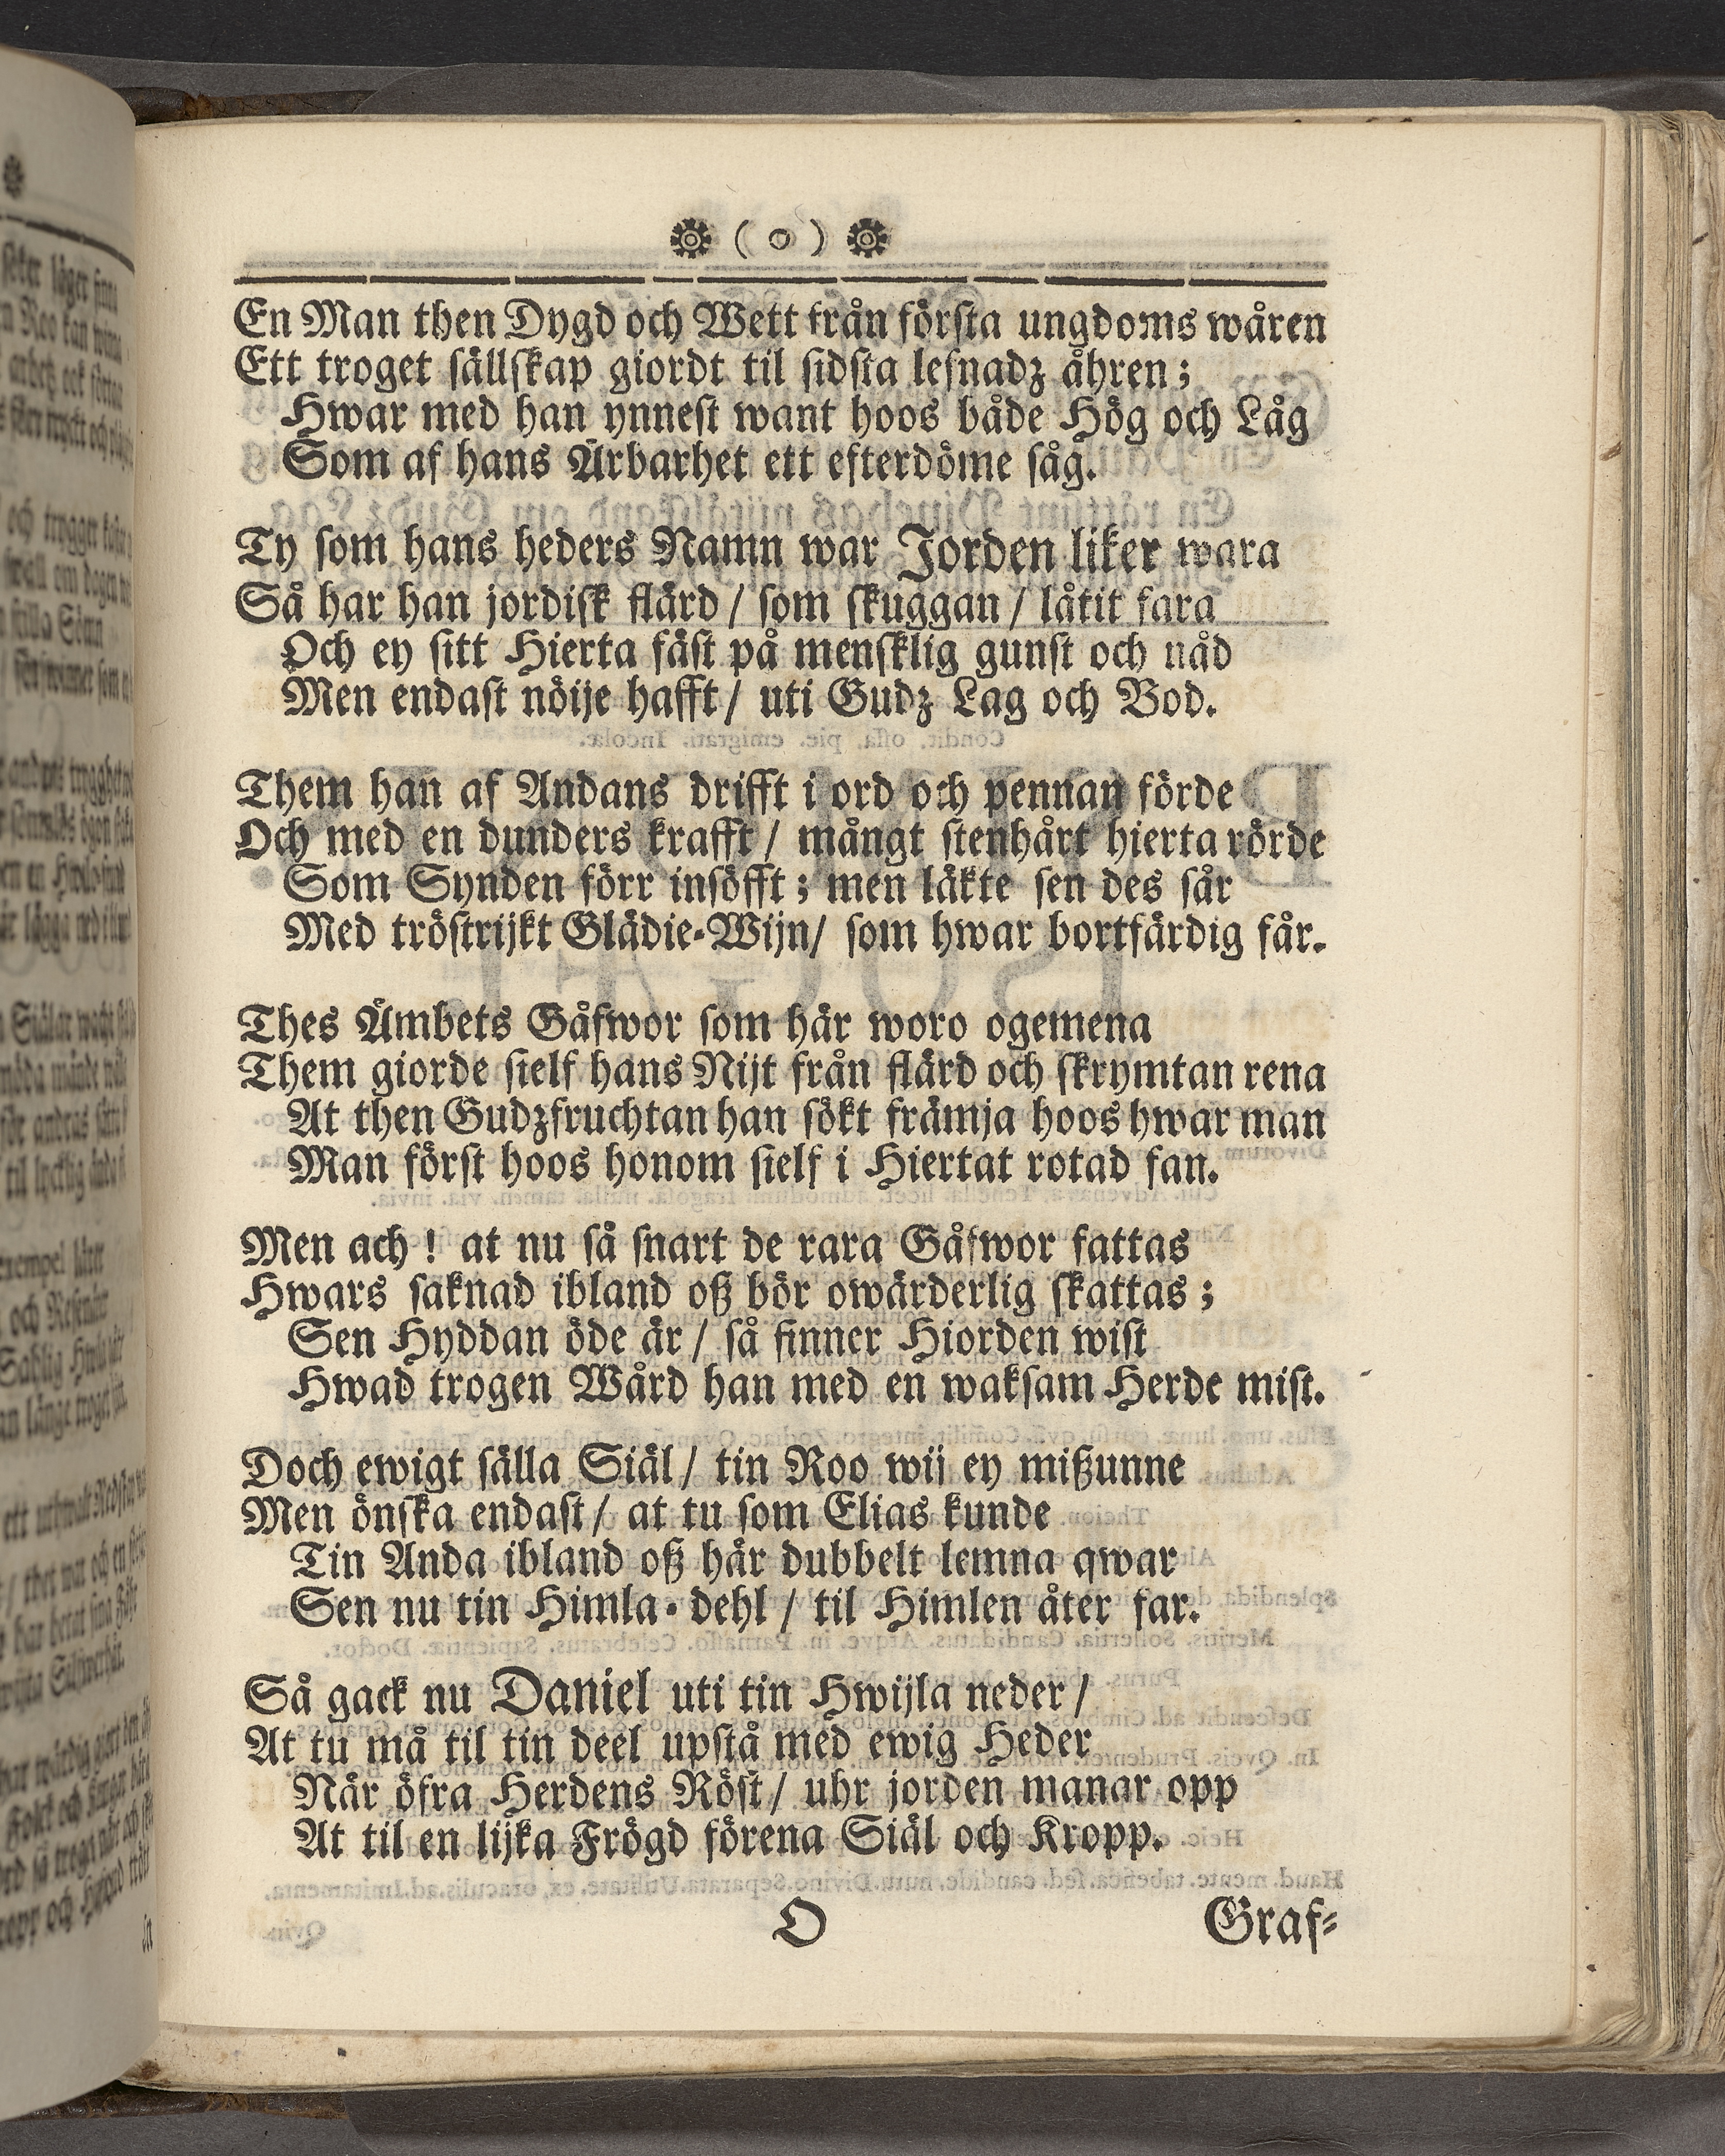 ❁ ( o ) ❁
En Man then Dygd och Wett från första ungdoms wåren
Ett troget sällskap giordt til sidsta lefnadz åhren;
Hwar med han ynnest want hoos både Hög och Låg
Som af hans Ärbarhet ett efterdöme såg.
Ty som hans heders Namn war Jorden liker wara
Så har han jordisk flärd / som skuggan / låtit fara
Och ey sitt Hierta fäst på mensklig gunst och nåd
Men endast nöije hafft / uti Gudz Lag och Bod.
Them han af Andans drifft i ord och pennan förde
Och med en dunders krafft / mångt stenhårt hierta rörde
Som Synden förr insöfft; men läkte sen des sår
Med tröstrijkt Glädie-Wijn / som hwar bortfärdig får.
Thes Ämbets Gåfwor som här woro ogemena
Them giorde sielf hans Nijt från flärd och skrymtan rena
At then Gudzfruchtan han sökt främja hoos hwar man
Man först hoos honom sielf i Hiertat rotad fan.
Men ach ! at nu så snart de rara Gåfwor fattas
Hwars saknad ibland oß bör owärderlig skattas;
Sen Hyddan öde är / så finner Hiorden wist
Hwad trogen Wård han med en waksam Herde mist.
Doch ewigt sälla Siäl / tin Roo wij ey mißunne
Men önska endast / at tu som Elias kunde
Tin Anda ibland oß här dubbelt lemna qwar
Sen nu tin Himla-dehl / til Himlen åter far.
Så gack nu Daniel uti tin Hwijla neder /
At tu må til tin deel upstå med ewig Heder
När öfra Herdens Röst / uhr jorden manar opp
At til en lijka Frögd förena Siäl och Kropp.
O
Graf-